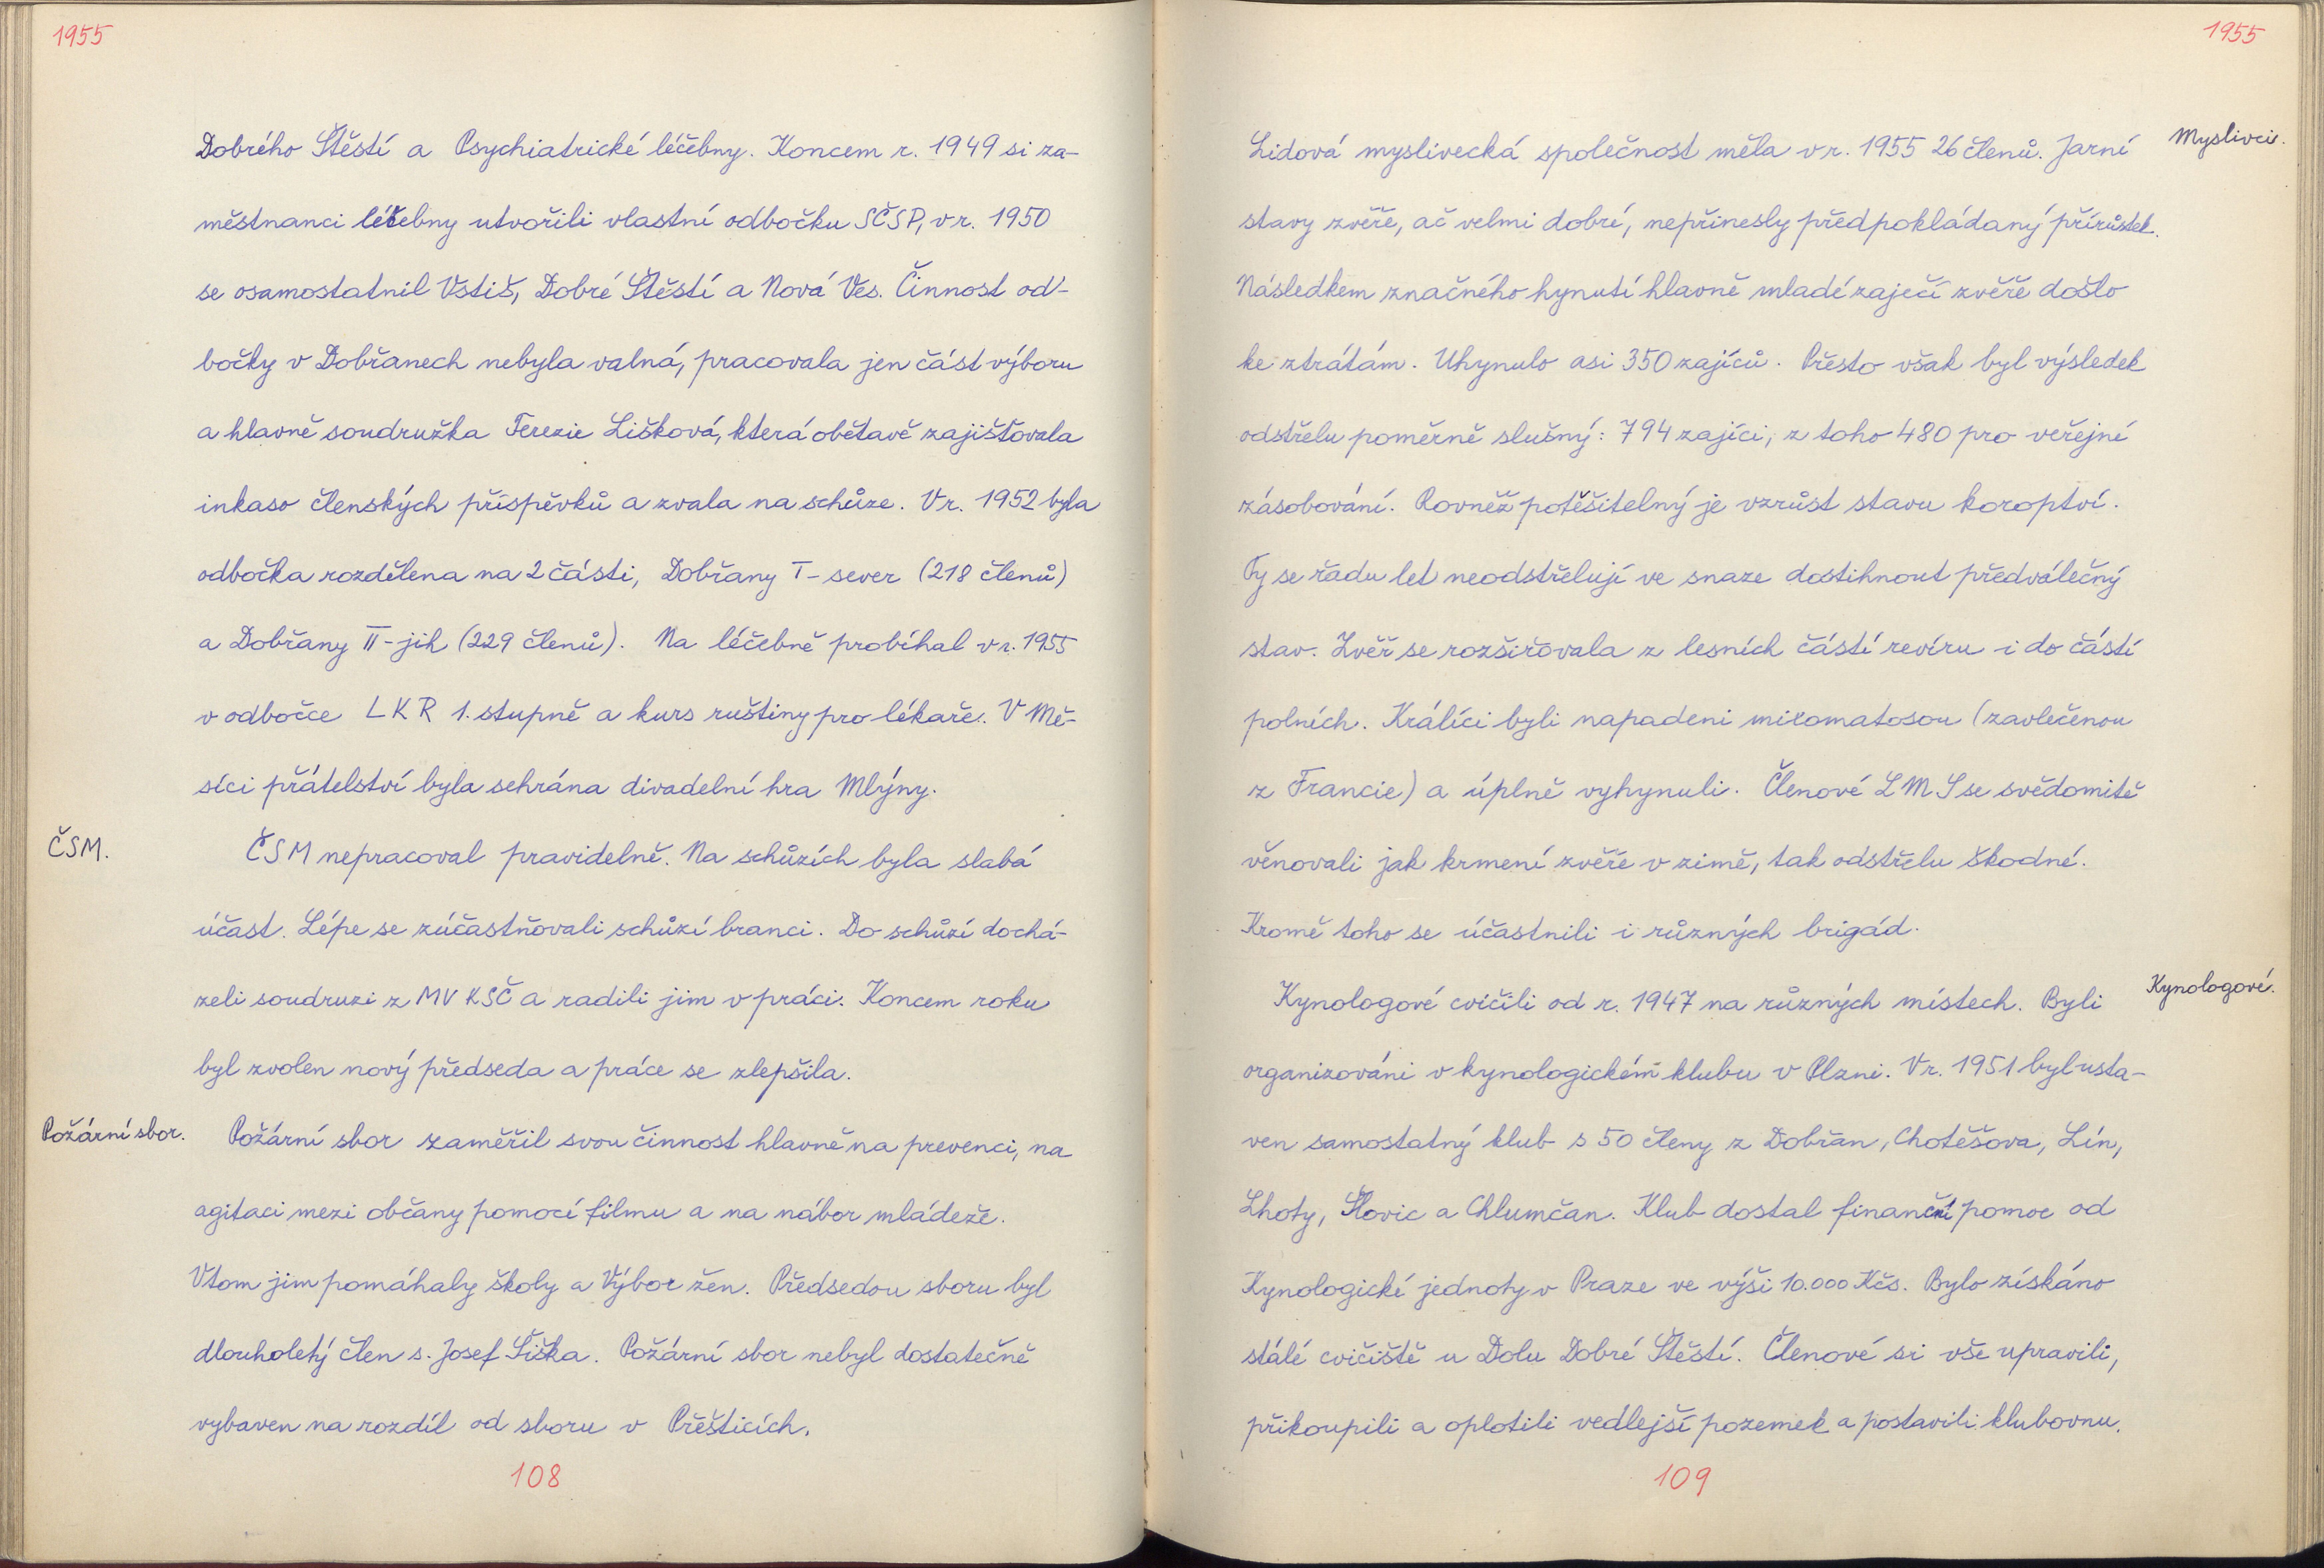 1955
Dobrého Štěstí a Psychiatrické léčebny. Koncem r. 1949 si za-
městnanci léčebny utvořili vlastní odbočku SČSP, v r. 1950
se osamostatnil Vstiš, Dobré Štěstí a Nová Ves. Činnost od-
bočky v Dobřanech nebyla valná, pracovala jen část výboru
a hlavně soudružka Terezie Lišková, která obětavě zajišťovala
inkaso členských příspěvků a zvala na schůze. V r. 1952 byla
odbočka rozdělena na 2 části, Dobřany I - sever (218 členů)
a Dobřany II - jih (229 členů). Na léčebně probíhal v r. 1955
v odbočce LKR 1. stupně a kurs ruštiny pro lékaře. V Mě-
síci přátelství byla sehrána divadelní hra Mlýny.
ČSM.
ČSM nepracoval pravidelně. Na schůzích byla slabá
účast. Lépe se zúčastňovali schůzí branci. Do schůzí dochá-
zeli soudruzi z MV KSČ a radili jim v práci. Koncem roku
byl zvolen nový předseda a práce se zlepšila.
Požární sbor.
Požární sbor zaměřil svou činnost hlavně na prevenci, na
agitaci mezi občany pomocí filmu a na nábor mládeže.
V tom jim pomáhaly školy a Výbor žen. Předsedou sboru byl
dlouholetý člen s. Josef Šiška. Požární sbor nebyl dostatečně
vybaven na rozdíl od sboru v Přešticích.
108
1955
Myslivci.
Lidová myslivecká společnost měla v r. 1955 26 členů. Jarní
stavy zvěře, ač velmi dobré, nepřinesly předpokládaný přírůstek.
Následkem značného hynutí hlavně mladé zaječí zvěře došlo
ke ztrátám. Uhynulo asi 350 zajíců. Přesto však byl výsledek
odstřelu poměrně slušný: 794 zajíci, z toho 480 pro veřejné
zásobování. Rovněž potěšitelný je vzrůst stavu koroptví.
Ty se řadu let neodstřelují ve snaze dostihnout předválečný
stav. Zvěř se rozšiřovala z lesních částí revíru i do částí
polních. Králíci byli napadeni mixomatosou (zavlečenou
z Francie) a úplně vyhynuli. Členové LMS se svědomitě
věnovali jak krmení zvěře v zimě, tak odstřelu škodné.
Kromě toho se účastnili i různých brigád.
Kynologové.
Kynologové cvičili od r. 1947 na různých místech. Byli
organizováni v kynologickém klubu v Plzni. V r. 1951 byl usta-
ven samostatný klub s 50 členy z Dobřan, Chotěšova, Lín,
Lhoty, Šlovic a Chlumčan. Klub dostal finanční pomoc od
Kynologické jednoty v Praze ve výši 10.000 Kčs. Bylo získáno
stálé cvičiště u Dolu Dobré Štěstí. Členové si vše upravili,
přikoupili a oplotili vedlejší pozemek a postavili klubovnu.
109